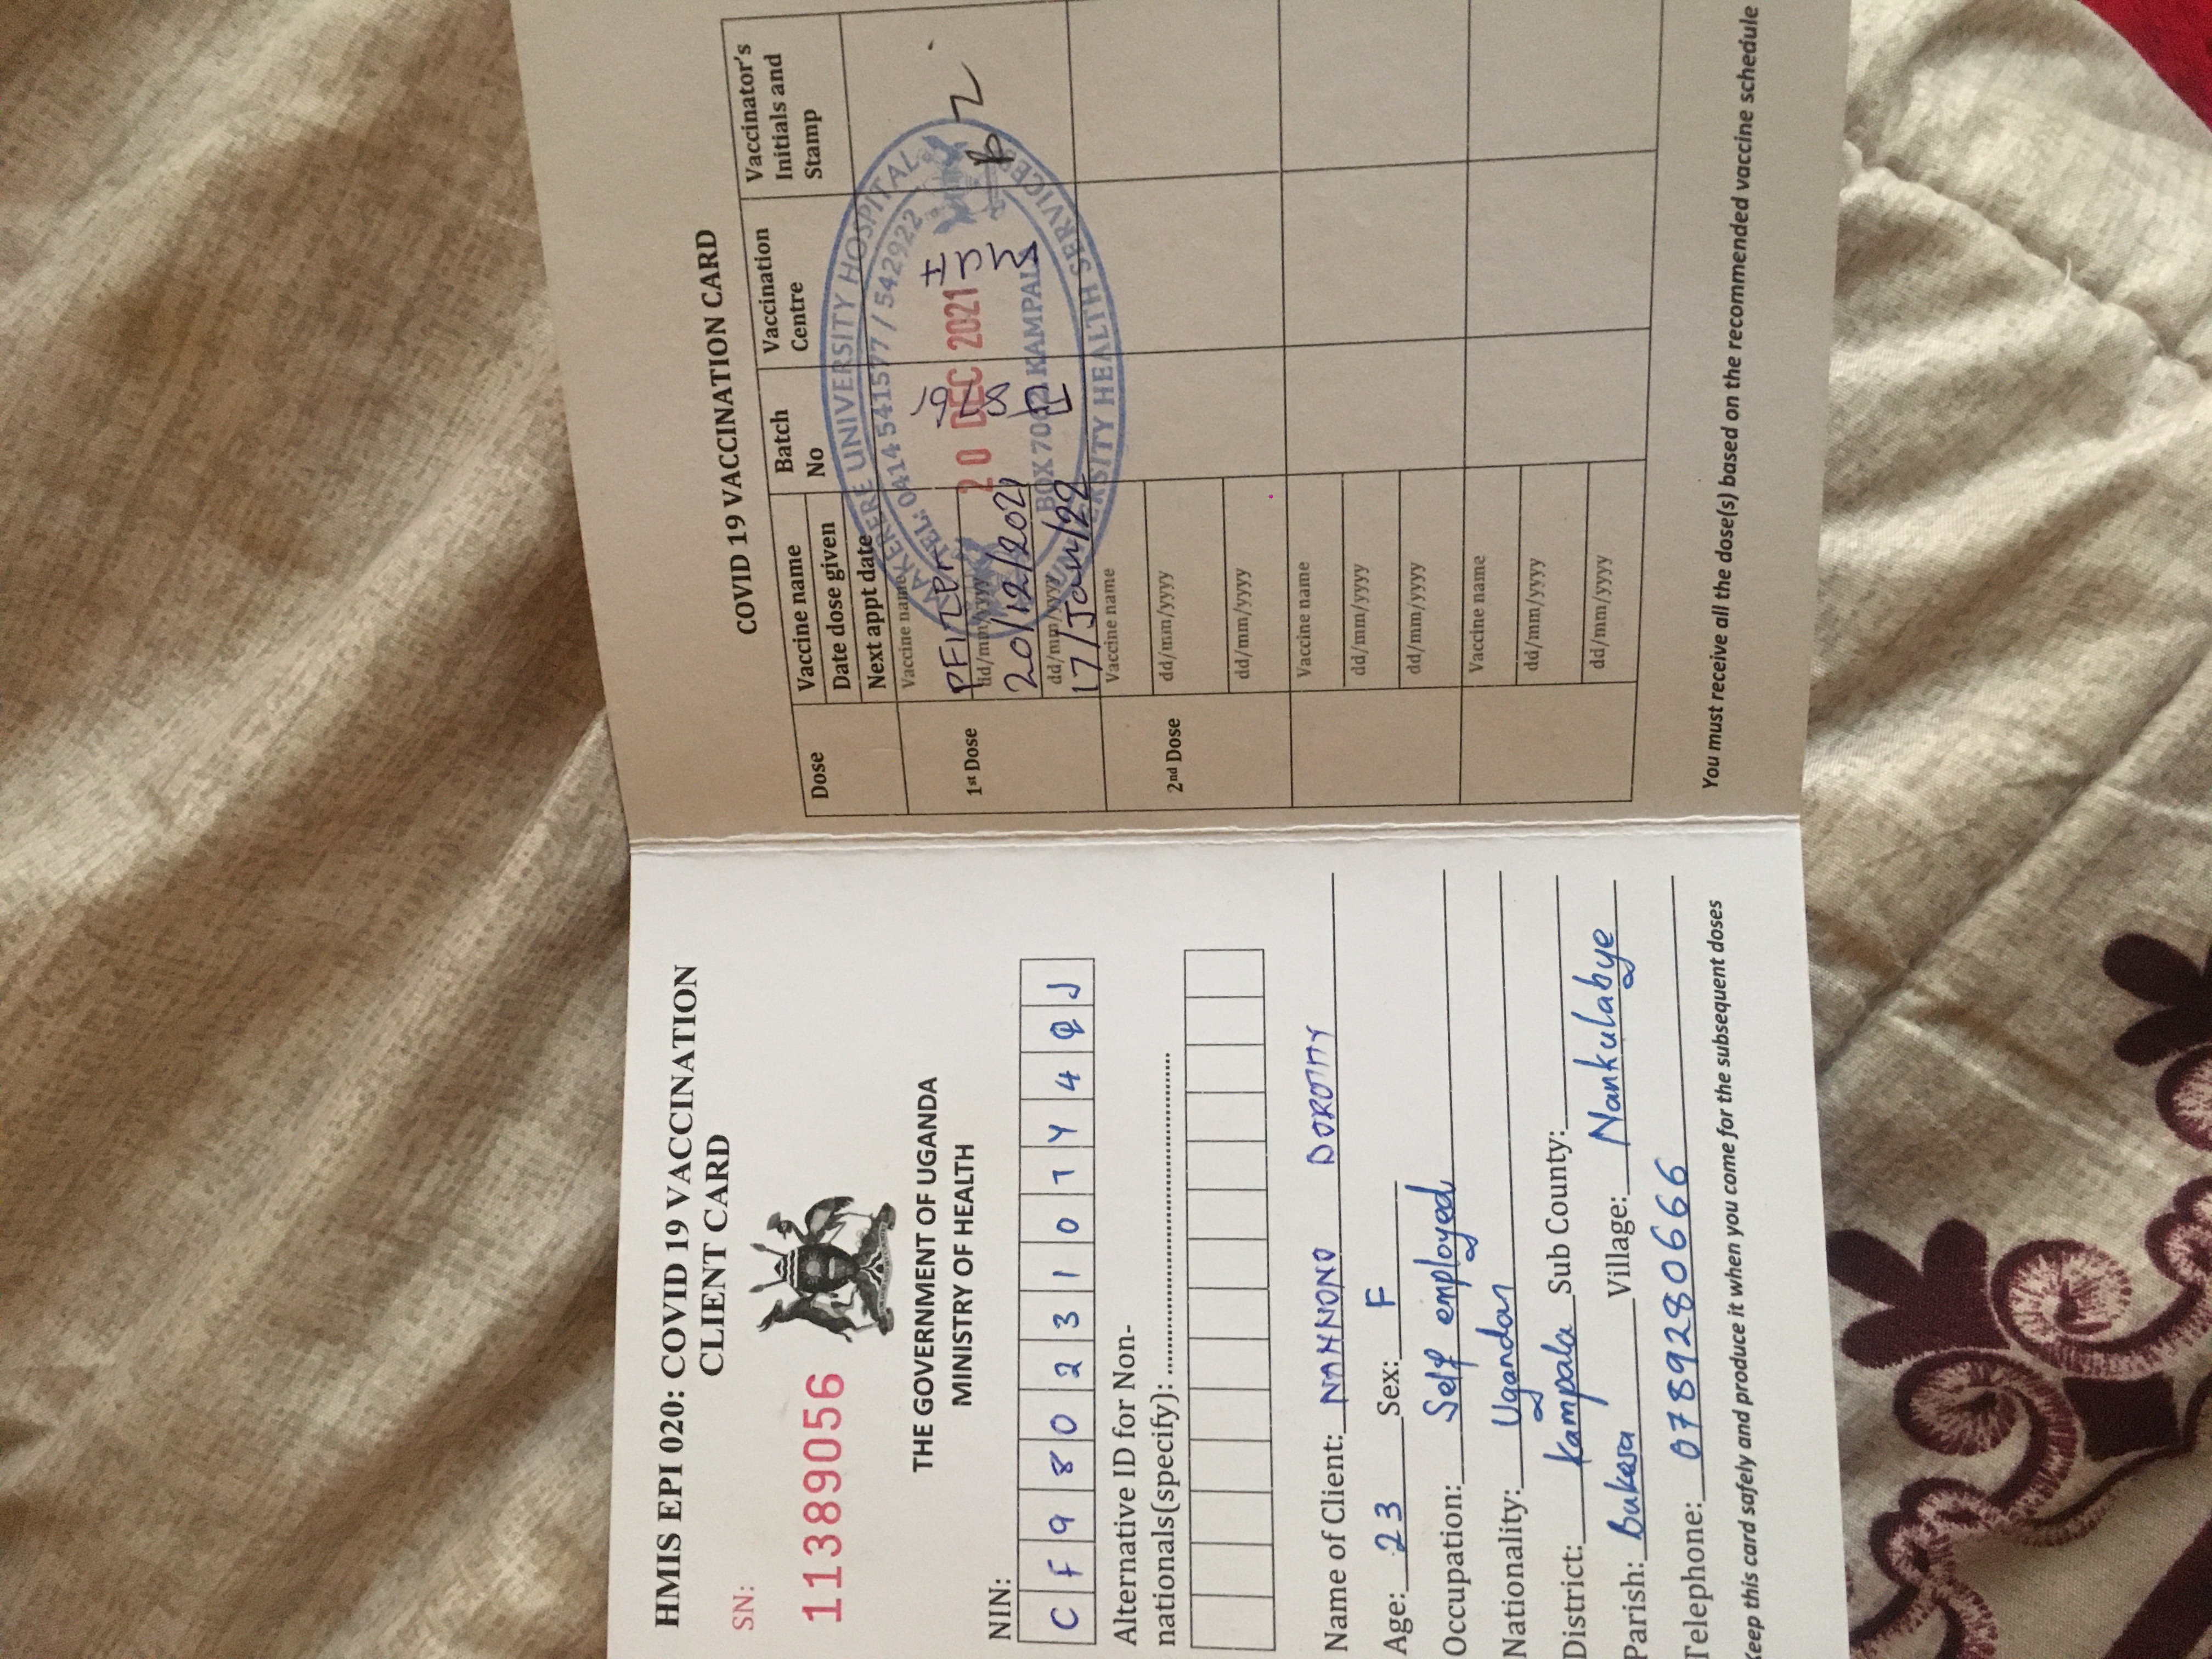 HMIS EPI 020: COVID 19 VACCINATION
CLIENT CARD
SN:
11389056
THE GOVERNMENT OF UGANDA
MINISTRY OF HEALTH
NIN:
C F 9 8 0 2 3 1 0 7 Y 4 Q J
Alternative ID for Non-
nationals(specify):
Name of Client: NAHNONO DOROTHY
Age: 23 Sex: F
Occupation: Self employed
Nationality: Ugandan
District: Kampala Sub County:
Parish: Bukesa Village: Nankulabye
Telephone: 0789280666
Keep this card safely and produce it when you come for the subsequent doses
COVID 19 VACCINATION CARD
Dose
Vaccine name
Date dose given
Next appt date
Batch
No
Vaccination
Centre
Vaccinator's
Initials and
Stamp
1st Dose
Vaccine name
PFIZER
dd/mm/yyyy
20/12/2021
dd/mm/yyyy
17/Jan/22
MAKERERE UNIVERSITY HOSPITAL
TEL: 0414 541577 / 5429922
20 DEC 2021
BOX 7062 KAMPALA
UNIVERSITY HEALTH SERVICES
2nd Dose
Vaccine name
dd/mm/yyyy
dd/mm/yyyy
Vaccine name
dd/mm/yyyy
dd/mm/yyyy
Vaccine name
dd/mm/yyyy
dd/mm/yyyy
You must receive all the dose(s) based on the recommended vaccine schedule